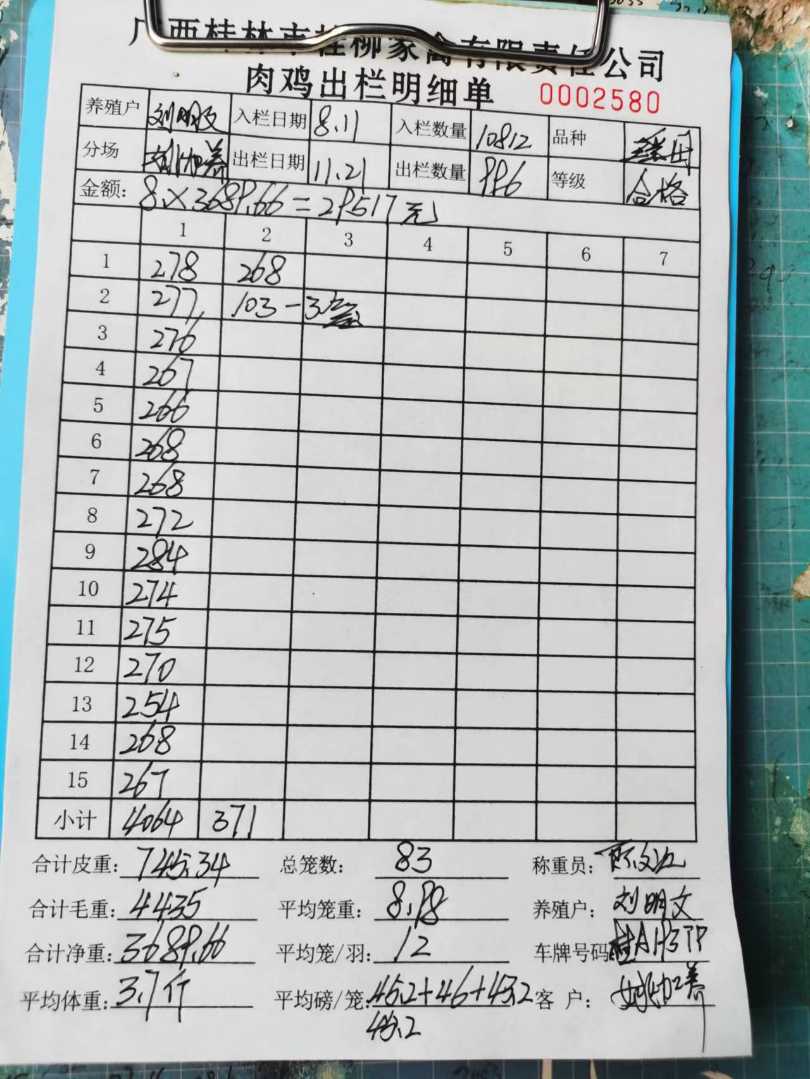 广西桂林市桂柳家禽有限责任公司
肉鸡出栏明细单 0002580
养殖户 刘明文 入栏日期 8.11 入栏数量 10812 品种
分场 出栏日期 11.21 出栏数量 996 等级 合格
金额: 8×3689.66=29517元
1 2 3 4 5 6 7
1 278 268
2 277 103-3
3 276
4 267
5 266
6 268
7 268
8 272
9 284
10 274
11 275
12 270
13 254
14 268
15 267
小计 4064 371
合计皮重: 745.34 总笼数: 83 称重员:
合计毛重: 4435 平均笼重: 8.98 养殖户: 刘明文
合计净重: 3689.66 平均笼/羽: 12 车牌号码
平均体重: 3.7斤 平均磅/笼: 45.2+46+43.2 客户:
45.2